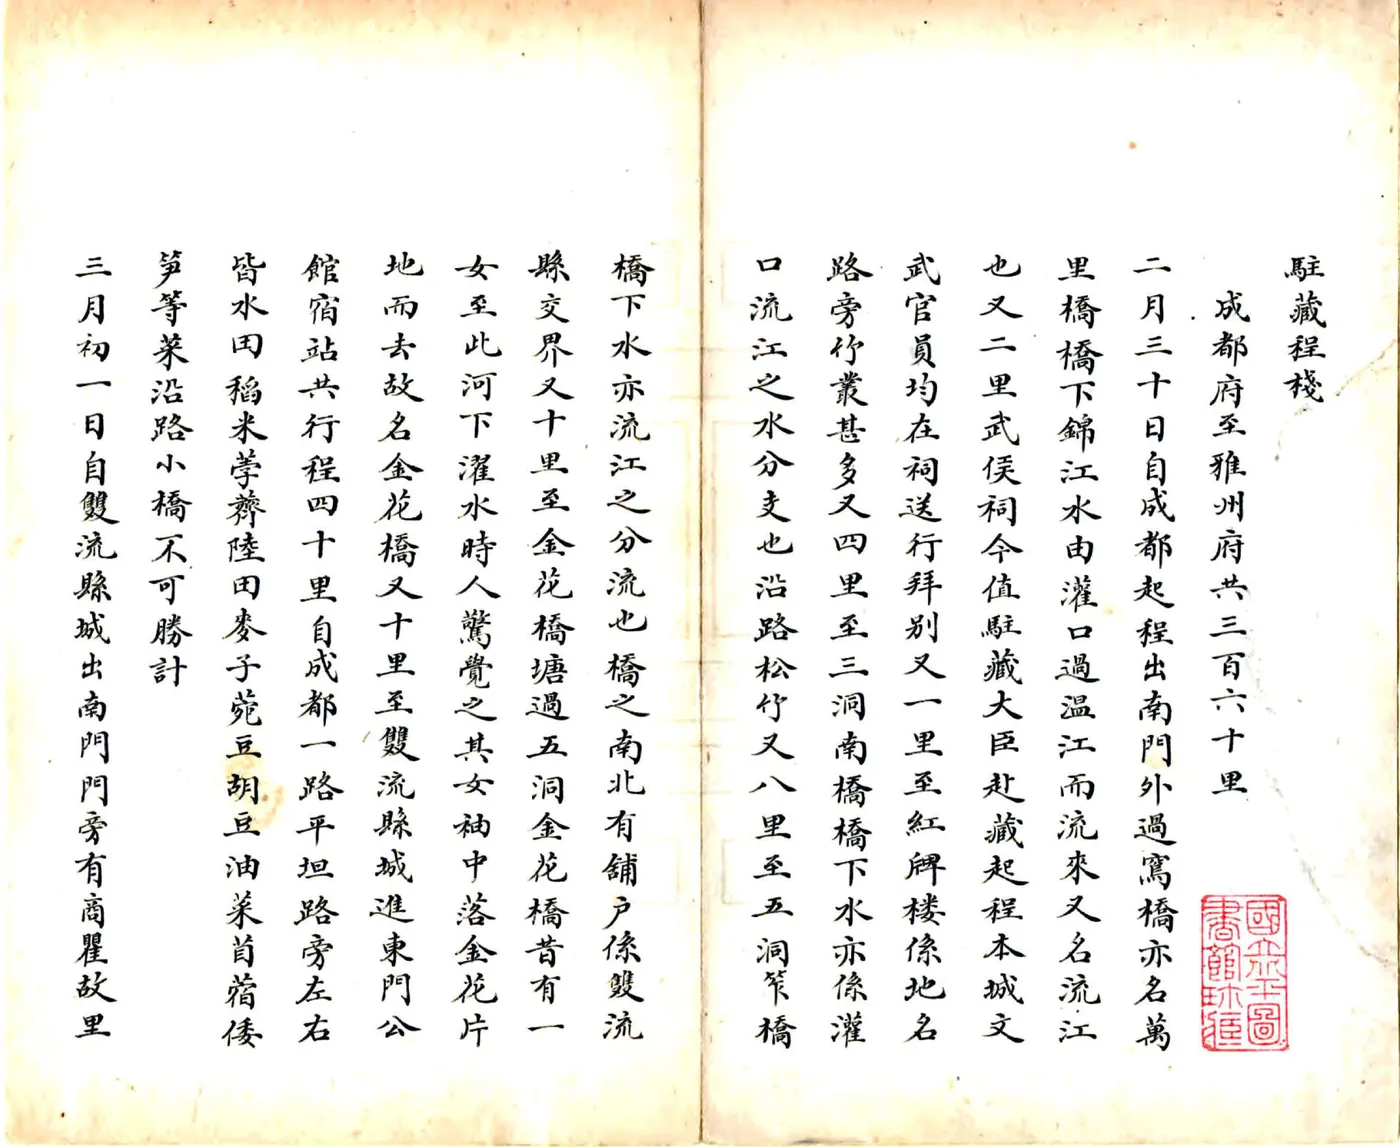 駐藏程棧
成都府至雅州府共三百六十里
二月三十日自成都起程出南門外過窵橋亦名萬
里橋橋下錦江水由灌口過温江而流來又名流江
也又二里武侯祠今值駐藏大臣赴藏起程本城文
武官員均在祠送行拜別又一里至紅牌楼係地名
路旁竹叢甚多又四里至三洞南橋橋下水亦係灌
口流江之水分支也沿路松竹又八里至五洞笮橋
橋下水亦流江之分流也橋之南北有舖户係雙流
縣交界又十里至金花橋塘過五洞金花橋昔有一
女至此河下濯水時人驚覺之其女袖中落金花片
地而去故名金花橋又十里至雙流縣城進東門公
館宿站共行程四十里自成都一路平坦路旁左右
皆水田稻米荸薺陸田麥子菀豆胡豆油菜苜蓿倭
笋等菜沿路小橋不可勝計
三月初一日自雙流縣城出南門門旁有商瞿故里
國立北平圖
書館珎藏